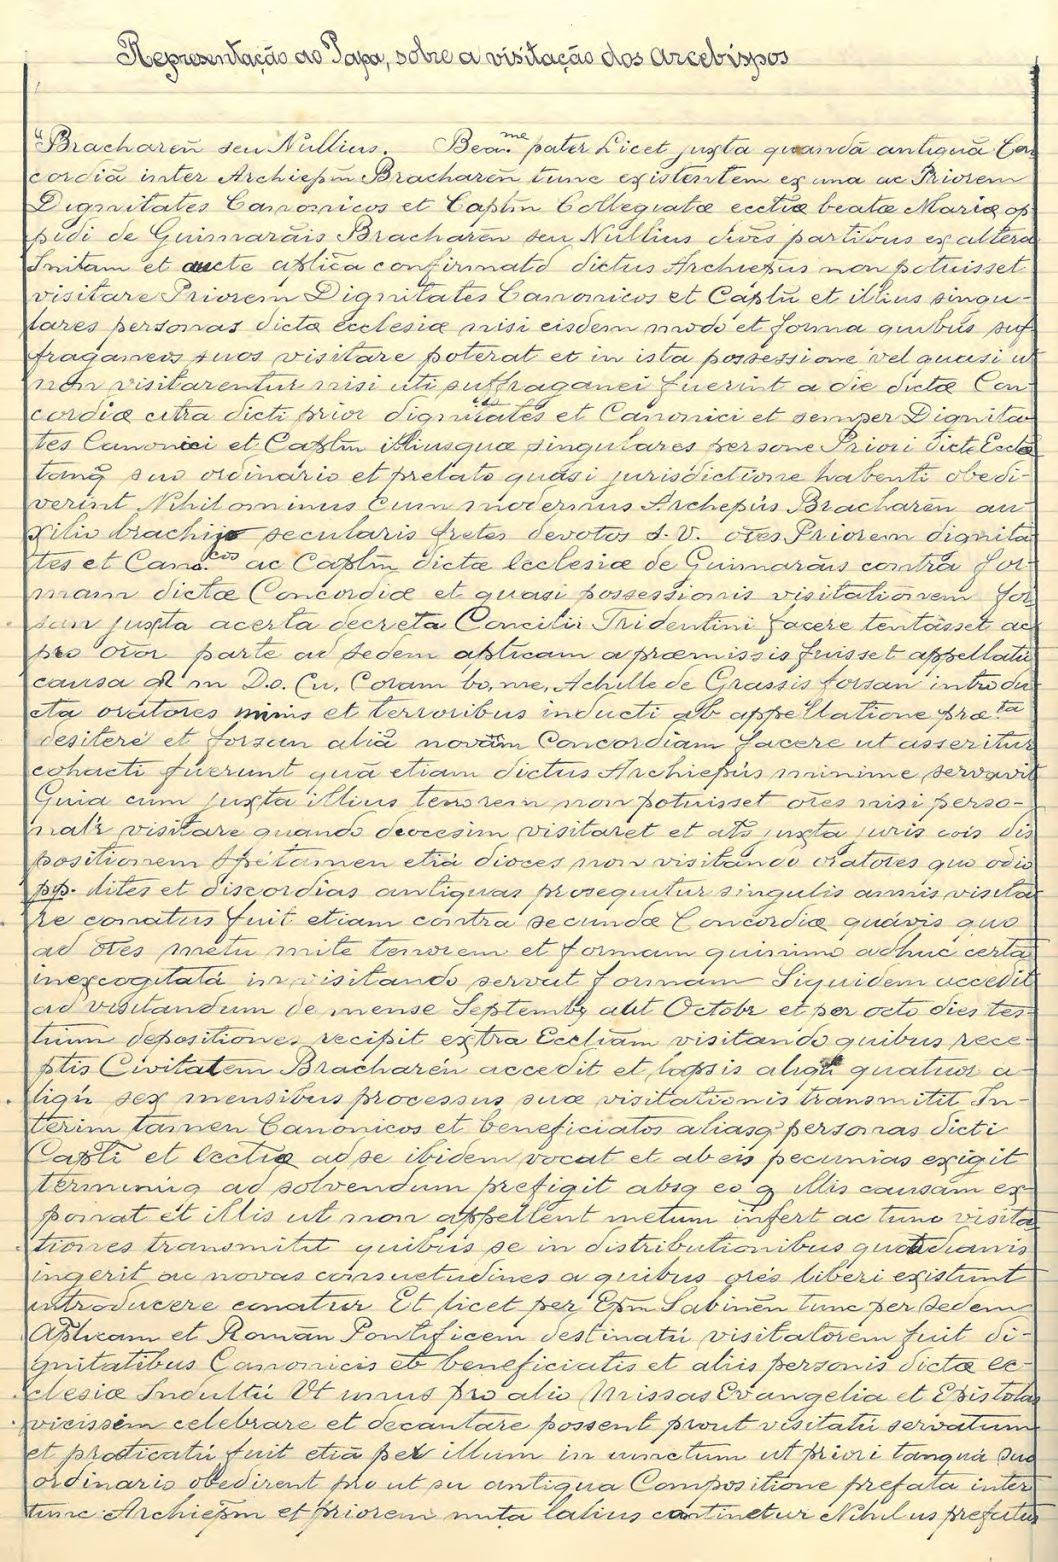 Representação ao Papa, sobre a visitação dos Arcebispos
"Bracharen̄ seu Nullius. Bea.me pater Licet juxta quandã antiquã Con
cordiã inter Archiep̄m Bracharen̄ tunc existentem ex una ac Priorem
Dignitates Canonicos et Capl̄m Collegiatæ eccl̄iæ beatæ Mariæ op
pidi de Guimarãis Bracharen̄ seu Nullius div̄es partibus ex altera
Initam et aucte apl̄ica confirmatã dictus Archiep̄us non potuisset
visitare Priorem Dignitates Canonicos et Capl̄ũ et illius singu-
lares personas dictæ ecclesiæ nisi eisdem modo et forma quibus suf
fraganeos suos visitare poterat et in ista possessione vel quasi ut
non visitarentur nisi uti suffraganei fuerint a die dictæ Con-
cordiæ citra dicti prior dignitates et Canonici et semper Dignita-
tes Canonici et Capl̄m illiusquæ singulares persone Priori dicte Eccl̄æ
tanq̃ suo ordinário et prelato quasi jurisdictione habenti obedi-
verint Nihilominus Cum modernus Archep̄us Bracharen̄ au-
xilio brachijo secularis fretes devotos S. V. or̄es Priorem dignita
tes et Cano.cos ac Capl̄m dictæ Ecclesiæ de Guimarãis contra for-
mam dictæ Concordiæ et quasi possessionis visitationem for
san juxta acerta decreta Concilii Tridentini facere tentasset ac
pro or̄or parte ad sedem apl̄icam a præmissis fuisset appellatũ
causa in D.o. Cu. Coram bo. me. Achille de Grassis forsan introdu
cta oratores minis et terroribus inducti ab appellatione præ.ta
desitere et forsan aliã novãm Concordiam facere ut asseritur
cohacti fuerunt quã etiam dictus Archiep̄us minime servavit
Quia cum juxta illius tenorem non potuisset or̄es nisi perso-
nal'r visitare quando diocesim visitaret et al's juxta juris cois dis
positionem tamen etiã dioces non visitando oratores quo odio
pp. lites et discordias antiquas prosequitur singulis annis visita
re conatus fuit etiam contra secundæ Concordiæ quávis quo
ad or̄es metu mite tenorem et formam quinimo adhuc certã
inexcogitatã in visitando servat formam Siquidem accedit
ad visitandum de mense Septembr aut Octobr et per octo dies tes-
tium depositiones recipit extra Eccl̄iam visitando quibus rece-
ptis Civitatem Bracharen̄ accedit et lapsis aliqñ quatuor a-
liqñ sex mensibus processus suæ visitationis transmitit In-
terim tamen Canonicos et beneficiatos aliasq̃ personas dicti
Capl̄i et eccl̄iæ ad se ibidem vocat et ab eis pecunias exigit
terminũq ad solvendum prefigit absq eo q illis causam ex-
ponat et illis ut non appellent metum infert ac tunc visita
tiones transmitit quibus se in distributionibus quotidianis
ingerit ac novas consuetudines a quibus or̄es liberi existunt
introducere conatur Et licet per Ep̄m Sabinen̄ tunc per sedem
Apl̄icam et Román Pontificem destinatũ visitatorem fuit di-
gnitatibus Canonicis et beneficiatis et aliis personis dictæ ec-
clesiæ Indultũ Ut unus pro alio Missas Evangelia et Epistolas
vicissim celebrare et decantare possent prout visitatũ servatum
et praticatũ fuit etiã per illum in iunctum ut priori tanquã suo
ordinario obedirent pro ut su antiqua Compositione prefata inter
tunc Archiep̄m et priorem latius continetur Nihil us prefatus